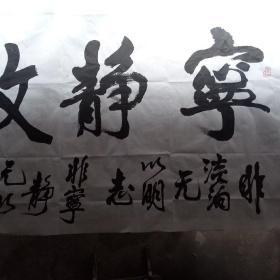 寧静
非淡泊无以明志非寧静无以